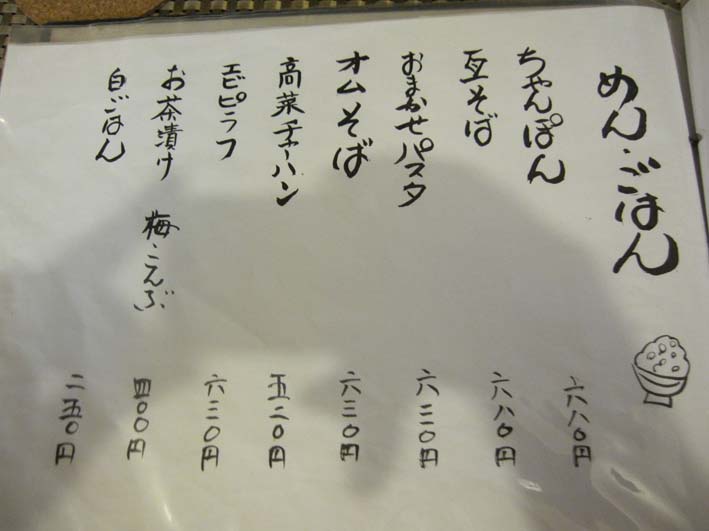 めん・ごはん
ちゃんぽん 六八〇円
瓦そば 六八〇円
おまかせパスタ 六三〇円
オムそば 六三〇円
高菜チャーハン 五二〇円
エビピラフ 六三〇円
お茶漬け 梅・こんぶ 四〇〇円
白ごはん 二五〇円